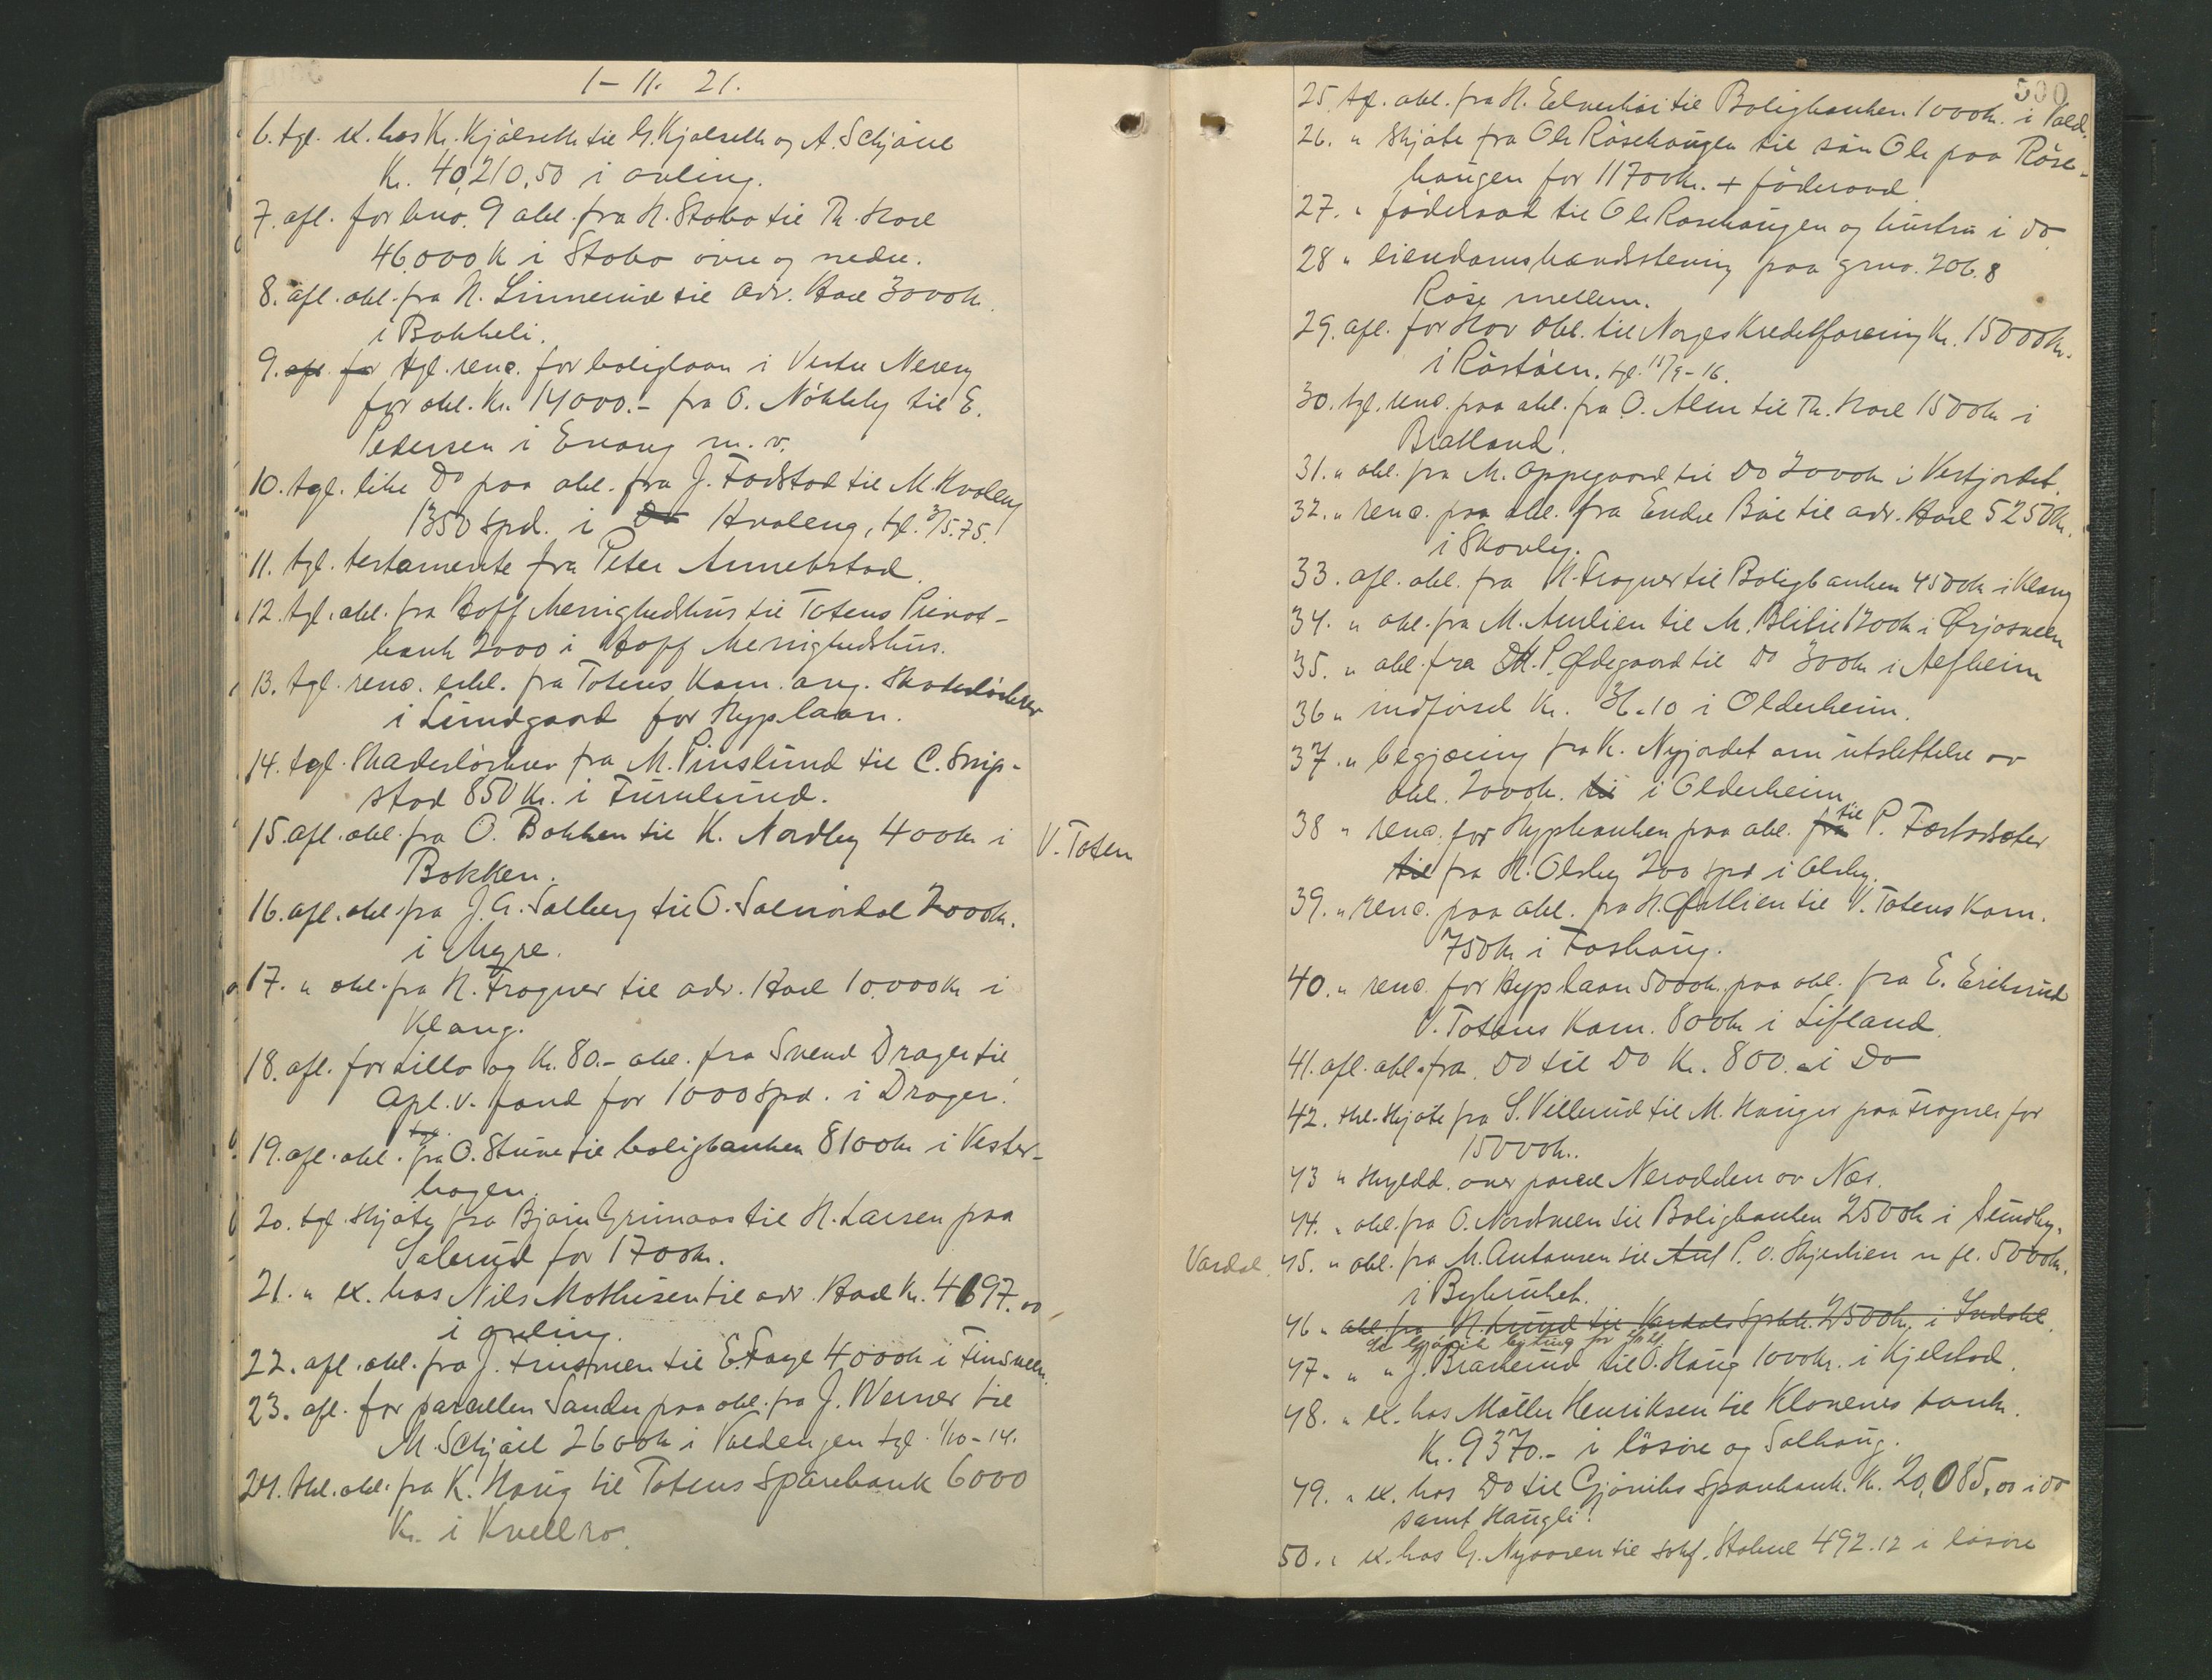 1-11. 21.
6. tgl. ex. hos Kr. Kjölseth til G. Kjølseth og A. Schjøll
Kr. 40,210,50 i avling.
7. afl. for bno. 9 obl. fra N. Stabo til Th. Hoel
46,000 K i Stabo övre og nedre.
8. afl. obl. fra N. Linnerud til adv. Hoel 3000 kr.
i Bakkeli.
9. afl. for tgl. renc. for boliglaan i Vestre Nereng
for obl. Kr. 14000.- fra O. Nökleby til E.
Pedersen i Envang m. v.
10. tgl. like Do paa obl. fra J. Fodstad til M. Kvoleng
1350 spd. i Do Hvaleng, tgl. 3/5.75.
11. tgl. testamente fra Peter Annebstad.
12. tgl. obl. fra Hoff Menighedshus til Totens Privat-
bank 2000 i Hoff Menighedshus.
13. tgl. renc. erkl. fra Totens Kom. ang. Skadeslösbrev
i Lundgaard for Hyplaan.
14. tgl. Skadeslösbrev fra M. Prinslund til C. Snip-
stad 850 Kr. i Furulund.
15. afl. obl. fra O. Bakken til K. Nordby 400 kr i
V. Toten
Bakken.
16. afl. obl. fra J. A. Solberg til O. Solnördal 2000 kr.
i Myre.
17. " obl. fra N. Frogner til adv. Hoel 10,000 Kr i
Klang.
18. afl. for Lillo og Kr. 80.- obl. fra Svend Drager til
Opl. v. fond for 1000 spd. i Drager.
19. afl. obl. fra O. Stune til boligbanken 8100 kr i Vester-
hagen.
20. tgl. skjöte fra Bjarne Grimaas til H. Larsen paa
Solerud for 1700 kr.
21. " ex. hos Nils Mathisen til adv. Hoel Kr. 4697.00
i avling.
22. afl. obl. fra J. Finsveen til E. Fage 4000 kr i Finsveen.
23. afl. for parcellen Sander paa obl. fra J. Werner til
M. Schjöll 2600 kr i Voldengen tgl. 1/10-14.
24. tgl. obl. fra K. Haug til Totens Sparebank 6000
Kr. i Kvellro.
500
25. tgl. obl. fra N. Elveshöi til Boligbanken 1000 kr. i Vold.
26. " skjöte fra Ole Rösehaugen til sön Ole paa Röse-
haugen for 11700 kr. + föderaad
27. " föderaad til Ole Rosehaugen og hustru i do
28 " eiendomshandstening paa gno. 206. 8
Röse mellem.
29. afl. for Hov obl. til Norges Kreditforening Kr. 15000 kr.
i Röstöen. tgl. 11/9-16.
30. tgl. renc. paa obl. fra O. Alm til Th. Hoel 1500 kr i
Bratland.
31. " obl. fra M. Oppegaard til Do 2000 kr i Vestjordet.
32. " renc. paa obl. fra Endre Böe til adv. Hoel 5250 kr.
i Skovly.
33. afl. obl. fra N. Frogner til Boligbanken 4500 kr i Klang
34. " obl. fra M. Amlien til M. Blilie 1200 kr i Ørjosveen
35. " obl. fra M. P. Ødegaard til Do 300 kr i Alfheim
36 " indförsel Kr. 36.10 i Olderheim.
37. " begjæring fra K. Nyjordet om utslettelse av
obl. 2000 kr. til i Olderheim
38 " renc. for Hypbanken paa obl. fra til P. Fostadsæter
til fra N. Olsby 200 spd i Olsby.
39. " renc. paa obl. fra N. Østlien til V. Totens Kom.
750 kr i Foshaug.
40. " renc. for Hyplaan 5000 kr. paa obl. fra E. Eriksrud
V. Totens Kom. 800 kr i Lifland.
41. afl. obl. fra Do til Do Kr. 800.- i Do
42. tgl. skjöte fra S. Villerud til M. Hauger paa Frogner for
15000 kr.
43 " skyldd. over parcel Nerodden av Næs.
44. " obl. fra O. Nordsveen til Boligbanken 2500 kr i Sundby.
Vardal. 45. " obl. fra M. Antonsen til Aul P. O. Skjerlien m fl. 5000 kr.
i Bybruket.
46 " obl. fra N. Lund til Vardal Spbk. 2500 kr. i Indahl.
47. " " J. Brækerud til O. Haug 1000 kr. i Kjelstad.
48. " ex. hos Möller Henriksen til Klonenes bank.
Kr. 9370.- i lösöre og Solhaug.
49. " ex. hos Do til Gjöviks Sparebank Kr. 20,085,00 i do
samt Haugli.
50. " ex. hos G. Nyaasen til sakf. Stabel 492.12 i lösöre